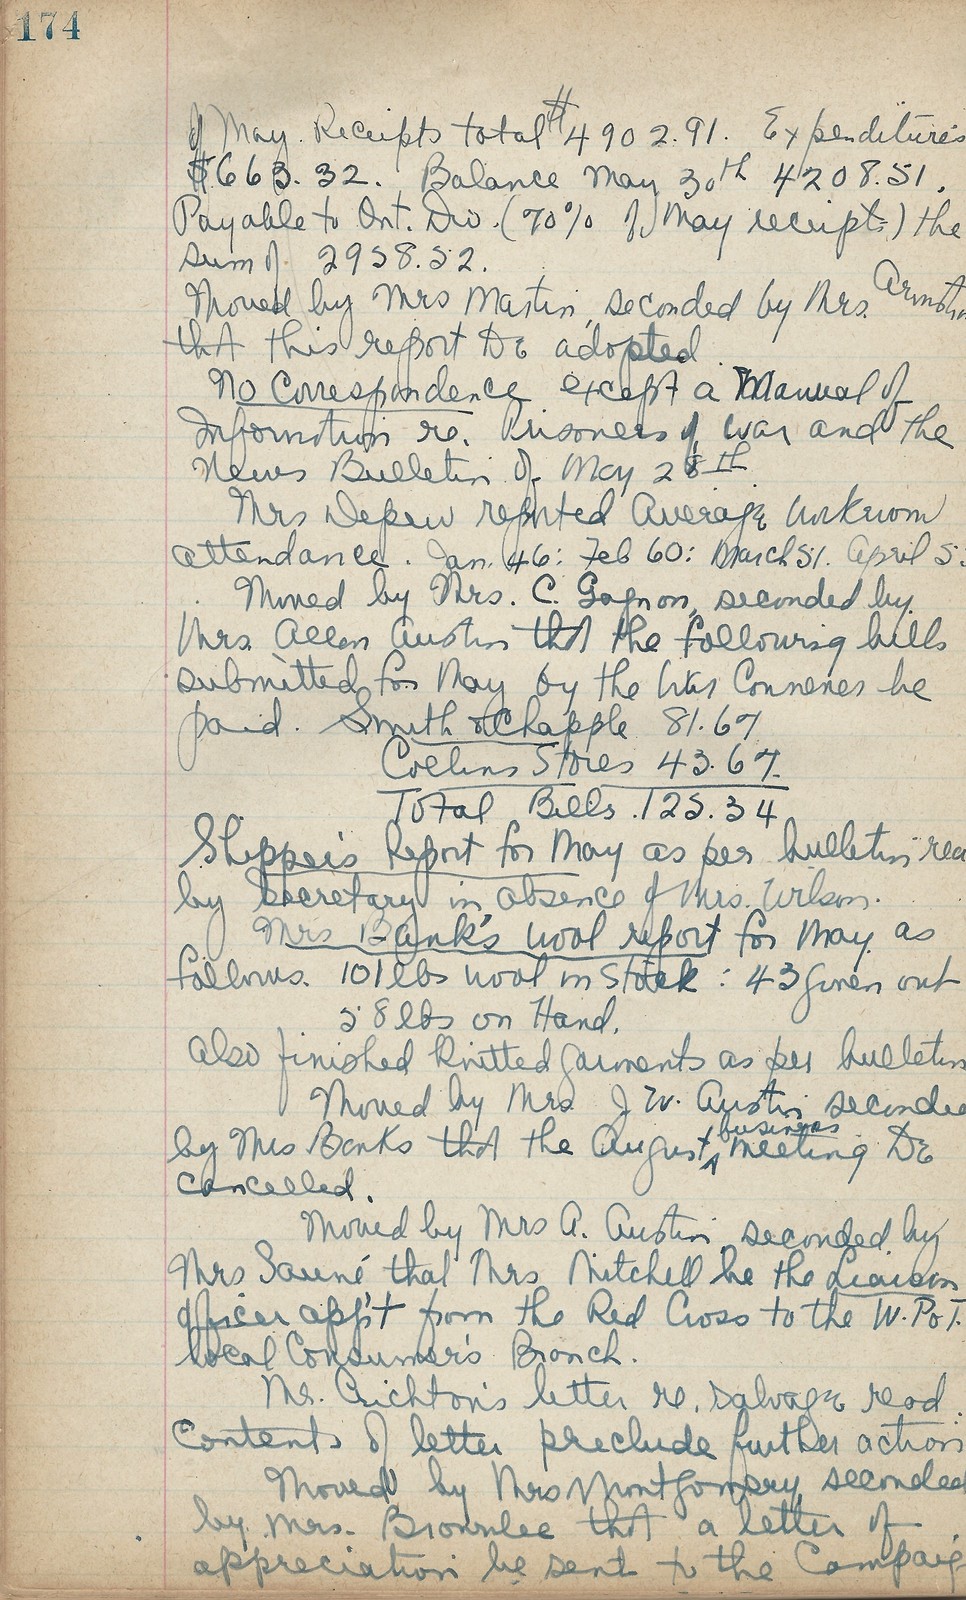 174
of May. Receipts total $4902.91. Expenditures
$663.32. Balance May 30th 4208.51.
Payable to Ont. Div. (70% of May receipts) the
sum of 2958.52.
Moved by Mrs Martin, seconded by Mrs.
that this report be adopted.
No Correspondence except a Manual of
Information re. Prisoners of War and the
News Bulletin of May 28th
Mrs Depew reported Average Workroom
attendance. Jan. 46: Feb 60: March 51. April 5
Moved by Mrs. C. Gagnon, seconded by
Mrs. Allan Austin that the following bills
submitted for May by the Wks Conveners be
paid. Smith & Chapple 81.67
Collins Stores 43.67
Total Bills. 125.34
Shipper's Report for May as per bulletin rea
by Secretary in absence of Mrs. Wilson.
Mrs Bank's wool report for May as
follows. 101 lbs wool in Stock: 43 given out
58 lbs on Hand.
Also finished knitted garments as per bulletin
Moved by Mrs J W. Austin seconded
by Mrs Banks that the August ^ business meeting be
cancelled.
Moved by Mrs A. Austin, seconded by
Mrs Sauvé that Mrs Mitchell be the Liaison
officer app't from the Red Cross to the W.P.&T.
local Consumer's Branch.
Mr. Crichton's letter re. salvage read.
Contents of letter preclude further action
Moved by Mrs Montgomery, seconded
by Mrs. Brownlee that a letter of
appreciation be sent to the Campaig